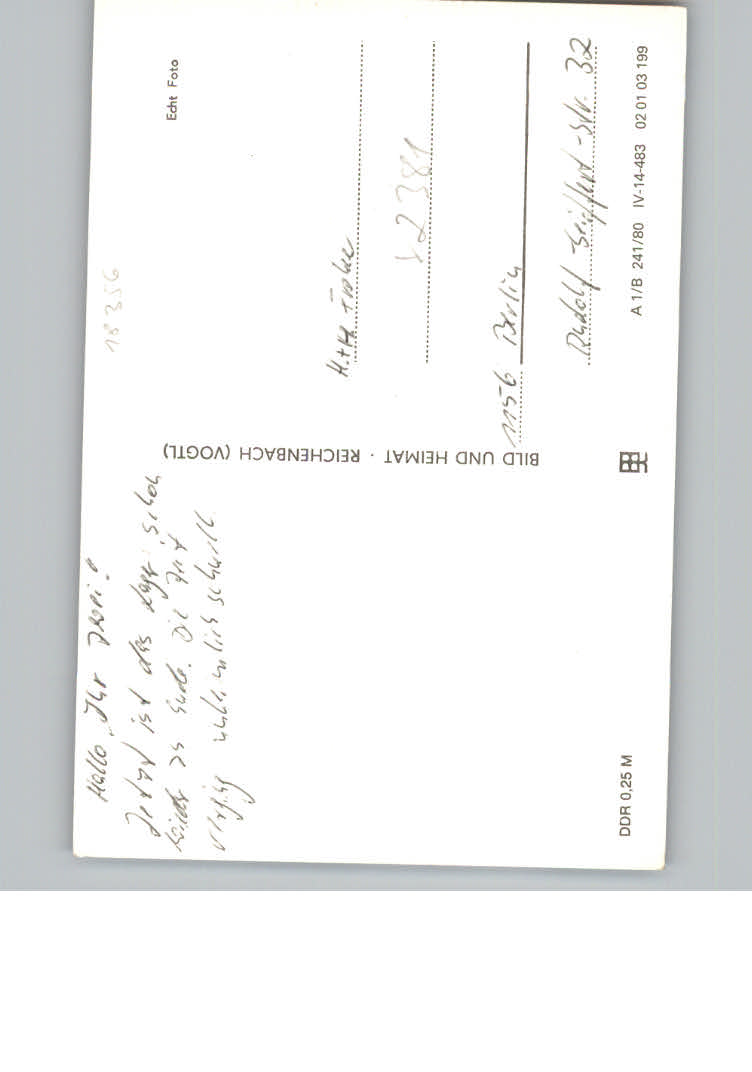 Hallo, Ihr Zwei!
Jetzt ist das Lager schon
wieder zu Ende. Die Zeit
verging unheimlich schnell.
BILD UND HEIMAT · REICHENBACH (VOGTL)
18356
Echt Foto
H.+H.
1156 Berlin
Rudolf-Seiffert-Str. 32
DDR 0,25 M
A 1/B 241/80 IV-14-483 02 01 03 199